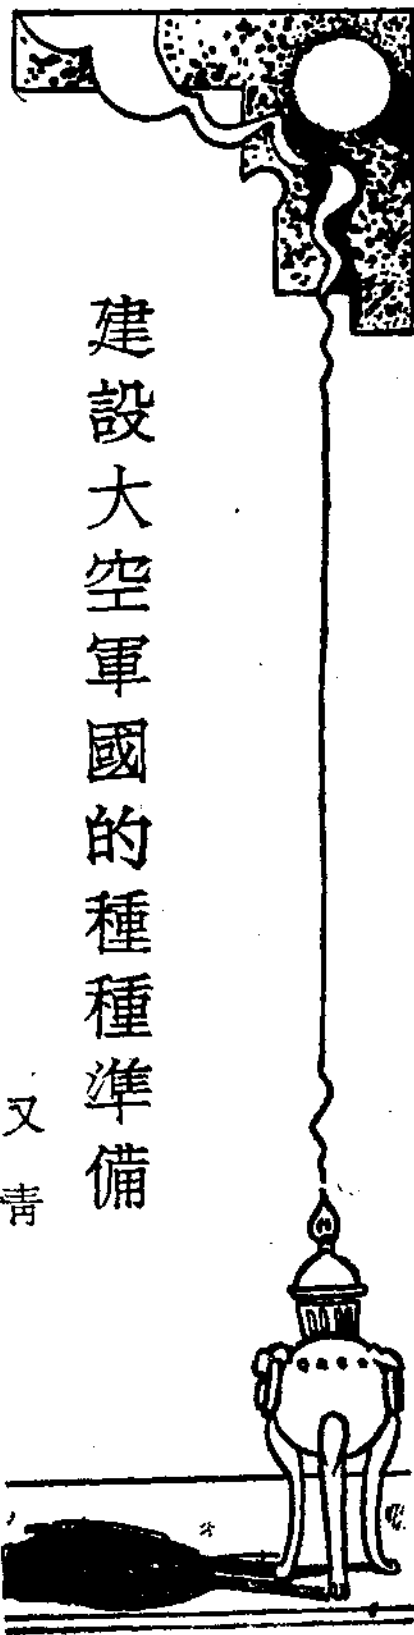 建設大空軍國的種種準備
又青